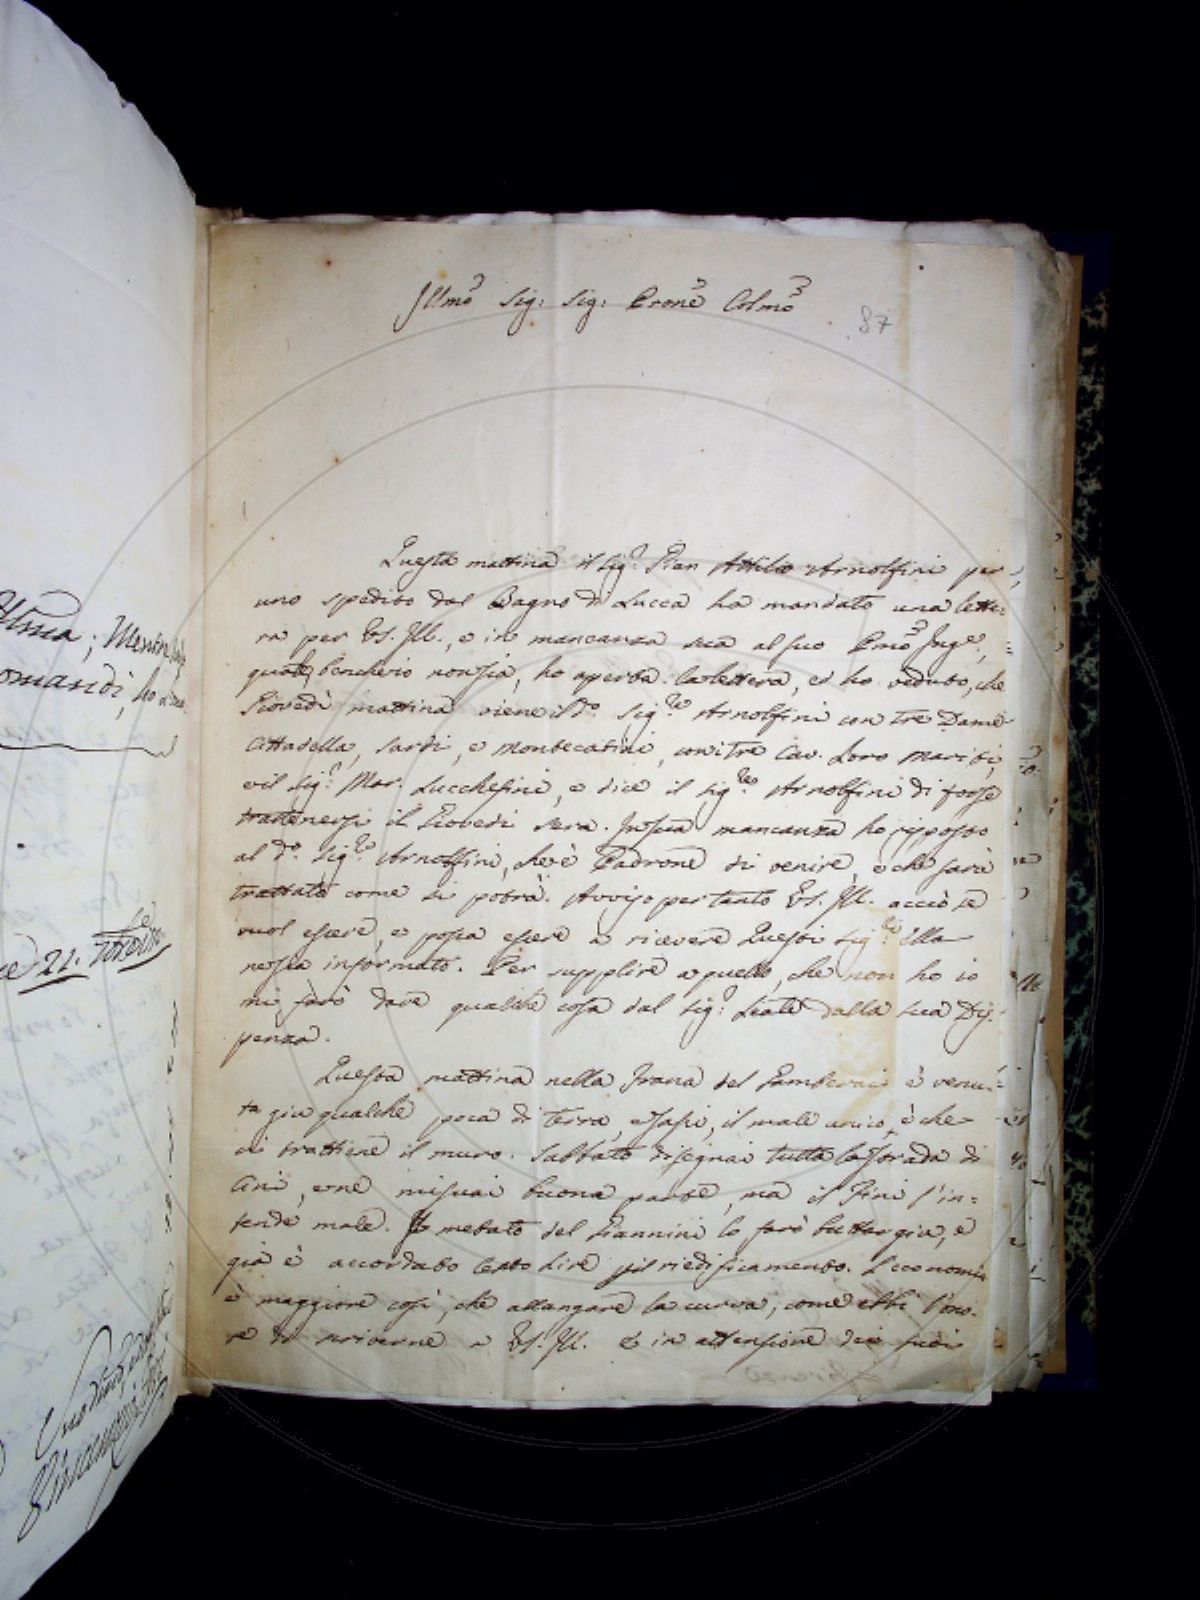 Illmo Sig: Sig: Prone Colmo
37
Questa mattina il Sig.r Gian Attilio Arnolfini per
uno spedito dal Bagno di Lucca ha mandato una lette-
ra per VS. Ill., e in mancanza sua al suo Pmo Inge.,
quale benchè io non sia, ho aperta la lettera, et ho veduto, che
Giovedì mattina viene il do. Sig.re Arnolfini con tre Dame
Cittadella, Sardi, e Montecatini, con i tre Cav. Loro Mariti,
e il Sig.r Mar. Lucchesini, e dice il Sig.re Arnolfini di forse
trattenersi il Giovedì sera. In sua mancanza ho risposto
al do. Sig.re Arnolfini, che è Padrone di venire, e che sarà
trattato come si potrà. Avviso pertanto VS. Ill. acciò se
vuol essere, e possa essere a ricevere questi Sig.ri Ella
ne sia informato. Per supplire a quello, che non ho io
mi farò dare qualche cosa dal Sig.r Leale dalla sua Dis-
penza.
Questa mattina nella frana del Gamberaio è venu-
ta giù qualche poca di terra, e sassi, il male unico, è che
ci trattiene il muro. Sabbato disegnai tutta la strada di
Cini, e ne misurai buona parte, ma il Pini s'in-
tende male. Il metato del Giannini lo farò buttar giù, e
già è accordato cento Lire pil riedificamento. L'economia
è maggiore così, che allargare la curva, come ebbi l'ono-
re di scriverne a VS. Ill. e in attenzione dei suoi
Ulma; Mentre
omandi, ho
21.